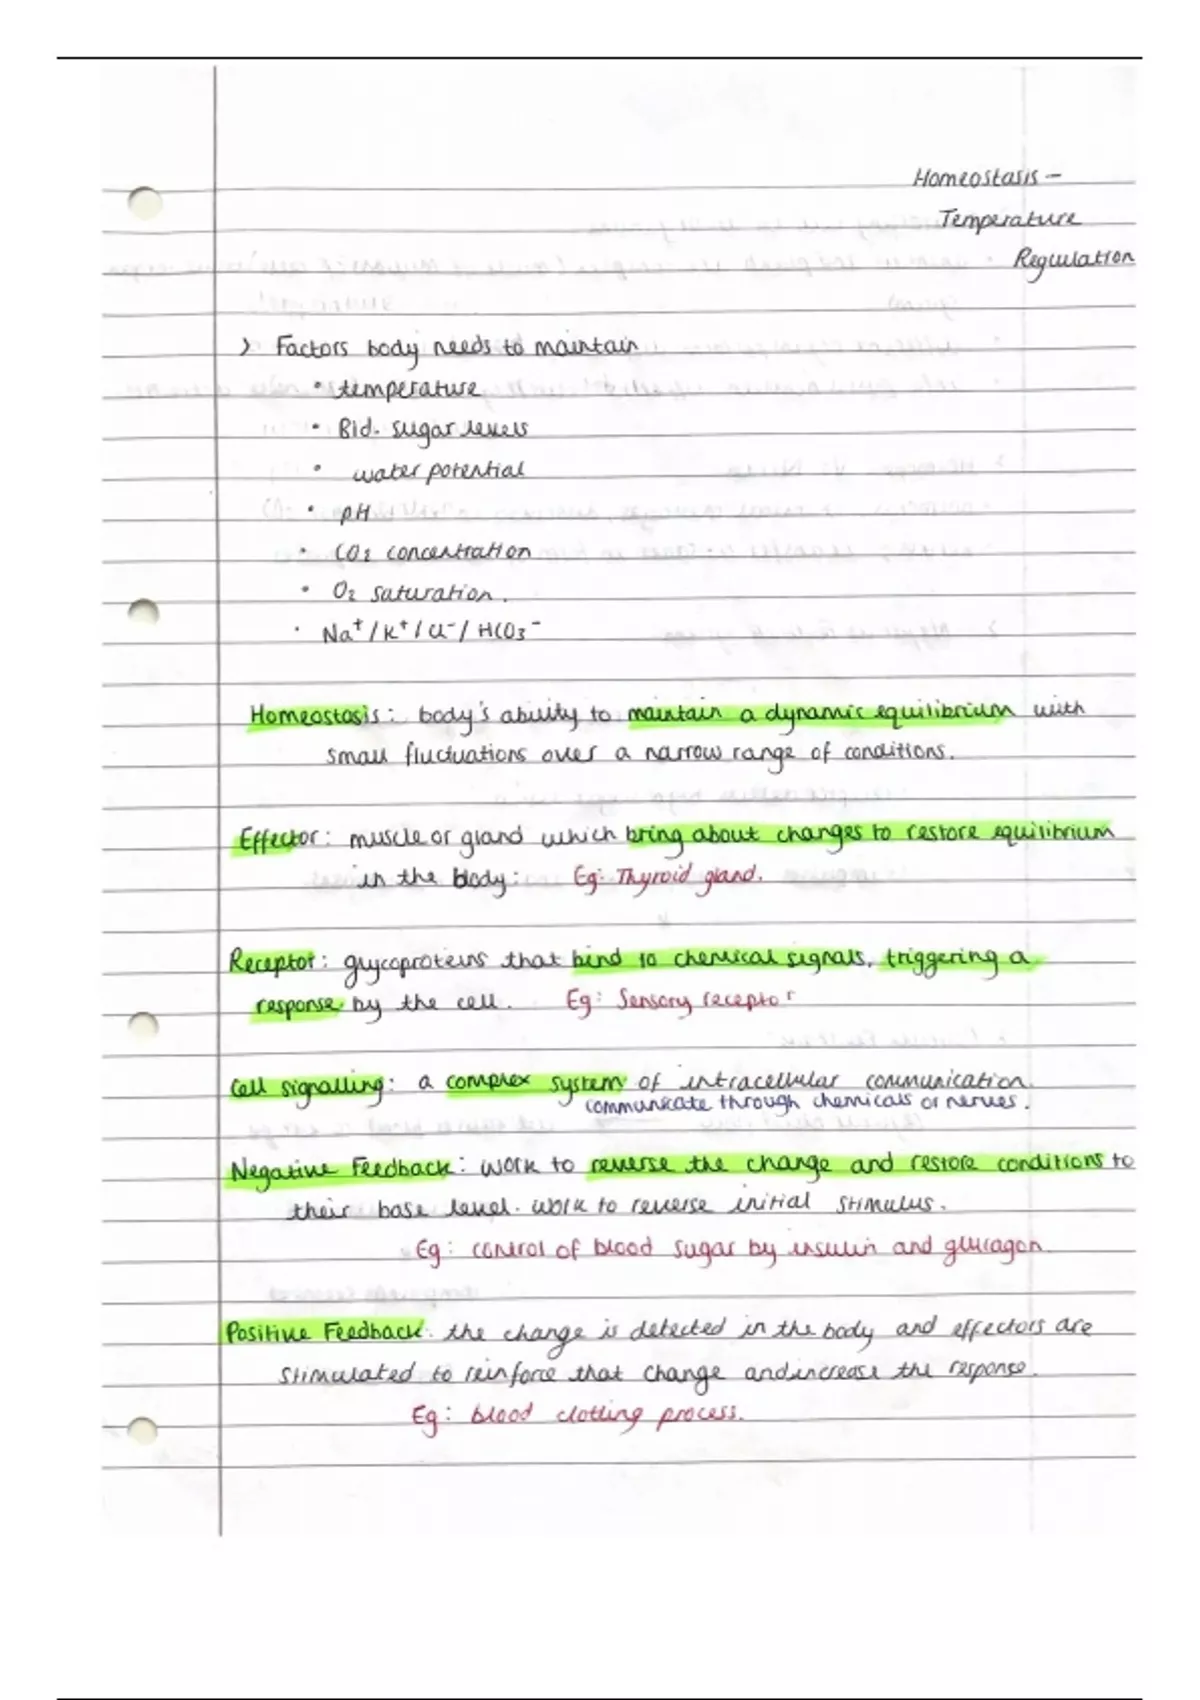 Homeostasis -
Temperature
Regulation
> Factors body needs to maintain
• temperature
• Bld. sugar levels
• water potential
• pH
• CO₂ concentration
• O₂ saturation.
• Na⁺ / K⁺ / Cl⁻ / HCO₃⁻
Homeostasis: body's ability to maintain a dynamic equilibrium with
small fluctuations over a narrow range of conditions.
Effector: muscle or gland which bring about changes to restore equilibrium
in the body: Eg: Thyroid gland.
Receptor: glycoproteins that bind to chemical signals, triggering a
response by the cell. Eg: Sensory receptor
Cell signalling: a complex system of intracellular communication.
communicate through chemicals or nerves.
Negative Feedback: work to reverse the change and restore conditions to
their base level. work to reverse initial stimulus.
Eg: control of blood sugar by insulin and glucagon.
Positive Feedback: the change is detected in the body and effectors are
stimulated to reinforce that change and increase the response.
Eg: blood clotting process.